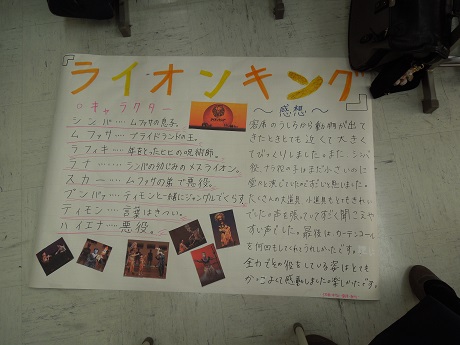 ライオンキング
キャラクター
シンバ……ムファサの息子。
ムファサ……プライドランドの王。
ラフィキ……年をとったヒヒの呪術師。
ナラ……シンバの幼なじみのメスライオン。
スカー……ムファサの弟で悪役。
プンバァ……ティモンと一緒にジャングルでくらす。
ティモン……言葉はきつい。
ハイエナ……悪役。
〜感想〜
客席のうしろから動物が出て
きたときとても近くて大きく
てびっくりしました。また、シンバ
役、ナラ役の子はまだ小さいのに
堂々と演じていたのですごいと思いました。
たくさんの大道具、小道具もとてもきれい
でした。声を張っていてすごく聞こえや
すい声でした。最後はカーテンコール
を何回もしてくれてうれしかったです。
全力でその役をしている姿はとても
かっこよくて感動しました。楽しかったです。